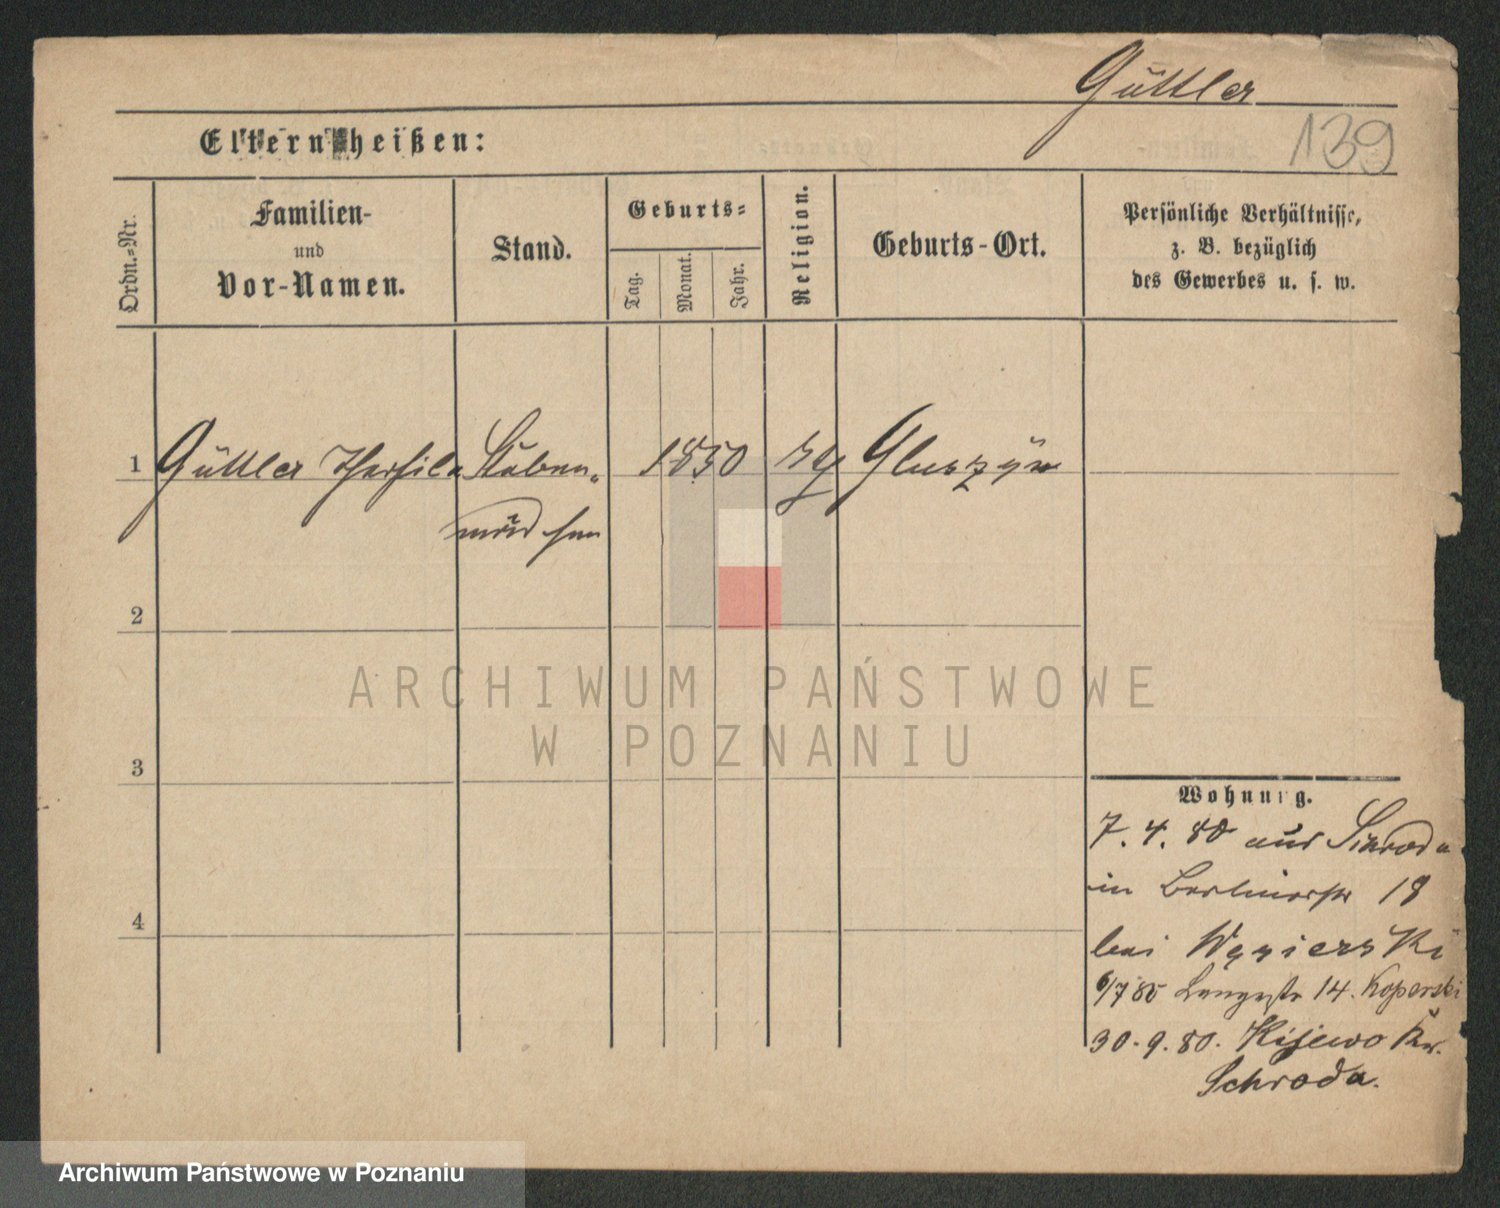 Güttler
139
Eltern heißen:
Ordn.=Nr.
Familien-
und
Vor-Namen.
Stand.
Geburts=
Tag.
Monat.
Jahr.
Religion.
Geburts-Ort.
Persönliche Verhältnisse,
z. B. bezüglich
des Gewerbes u. s. w.
1 Güttler Stuben- 1850 Gluszyn
mädchen
2
3
4
Wohnung.
7. 4. 80 aus
in Berlinerstr 18
bei Węsierski
6/7 80 Langestr 14. Koperski
30. 9. 80. Kijewo Kr.
Schroda.
ARCHIWUM PAŃSTWOWE
W POZNANIU
Archiwum Państwowe w Poznaniu